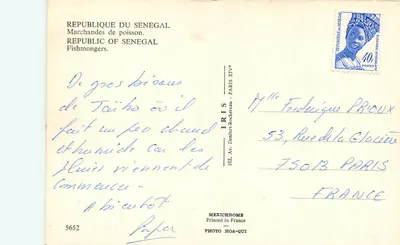 REPUBLIQUE DU SENEGAL
Marchandes de poisson.
REPUBLIC OF SENEGAL
Fishmongers.
De gros bisous
de Taïba où il
fait un peu chaud
et humide car les
pluies viennent de
commencer -
A bientôt
5652
IRIS
102, Av. Denfert-Rochereau - PARIS XIVe
MEXICHROME
Printed in France
PHOTO HOA-QUI
40f
Mlle Frédérique PRIOUX
53, Rue de la Glacière
75013 PARIS
FRANCE